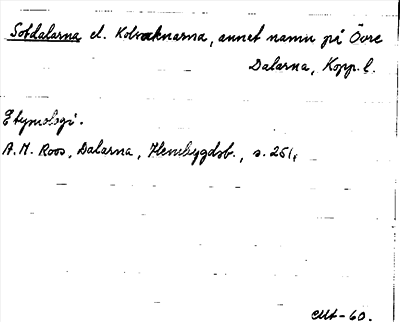 Sotdalarna el. Kolvaknarna, annat namn på Övre
Dalarna, Kopp. l.
Etymologi.
A.M. Roos, Dalarna, Hembygdsb., s. 251,
-60.